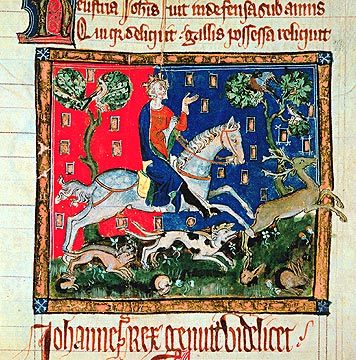 Neustria Johis ruit indefensa sub annis
Qui qr deliquit · gallis possessa reliquit
Johannes Rex genuit videlicet ·